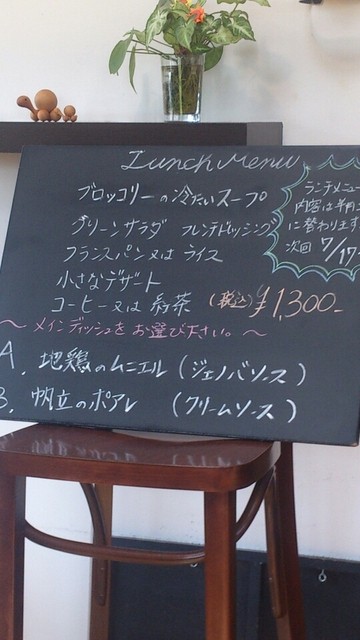 Lunch Menu
ブロッコリーの冷たいスープ
グリーンサラダ フレンチドレッシング
フランスパン又は ライス
小さなデザート
コーヒー又は 紅茶 (税込) ¥1,300-
〜 メインディッシュを お選び下さい。 〜
A. 地鶏のムニエル (ジェノバソース)
B. 帆立のポアレ (クリームソース)
ランチメニュー
内容は半月
に替わります
次回 7/17